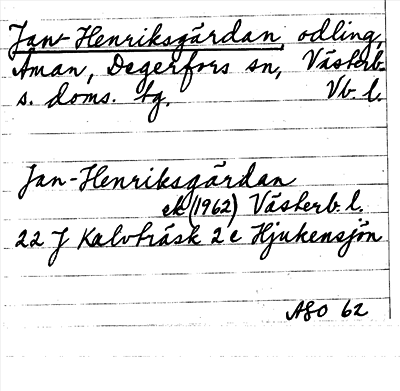 Jan-Henriksgärdan, odling,
Åman, Degerfors sn, Västerb.
s. doms. tg. Vb. l.
Jan-Henriksgärdan
ek (1962) Västerb. l.
22 J Kalvträsk 2 c Hjukensjön
ASO 62